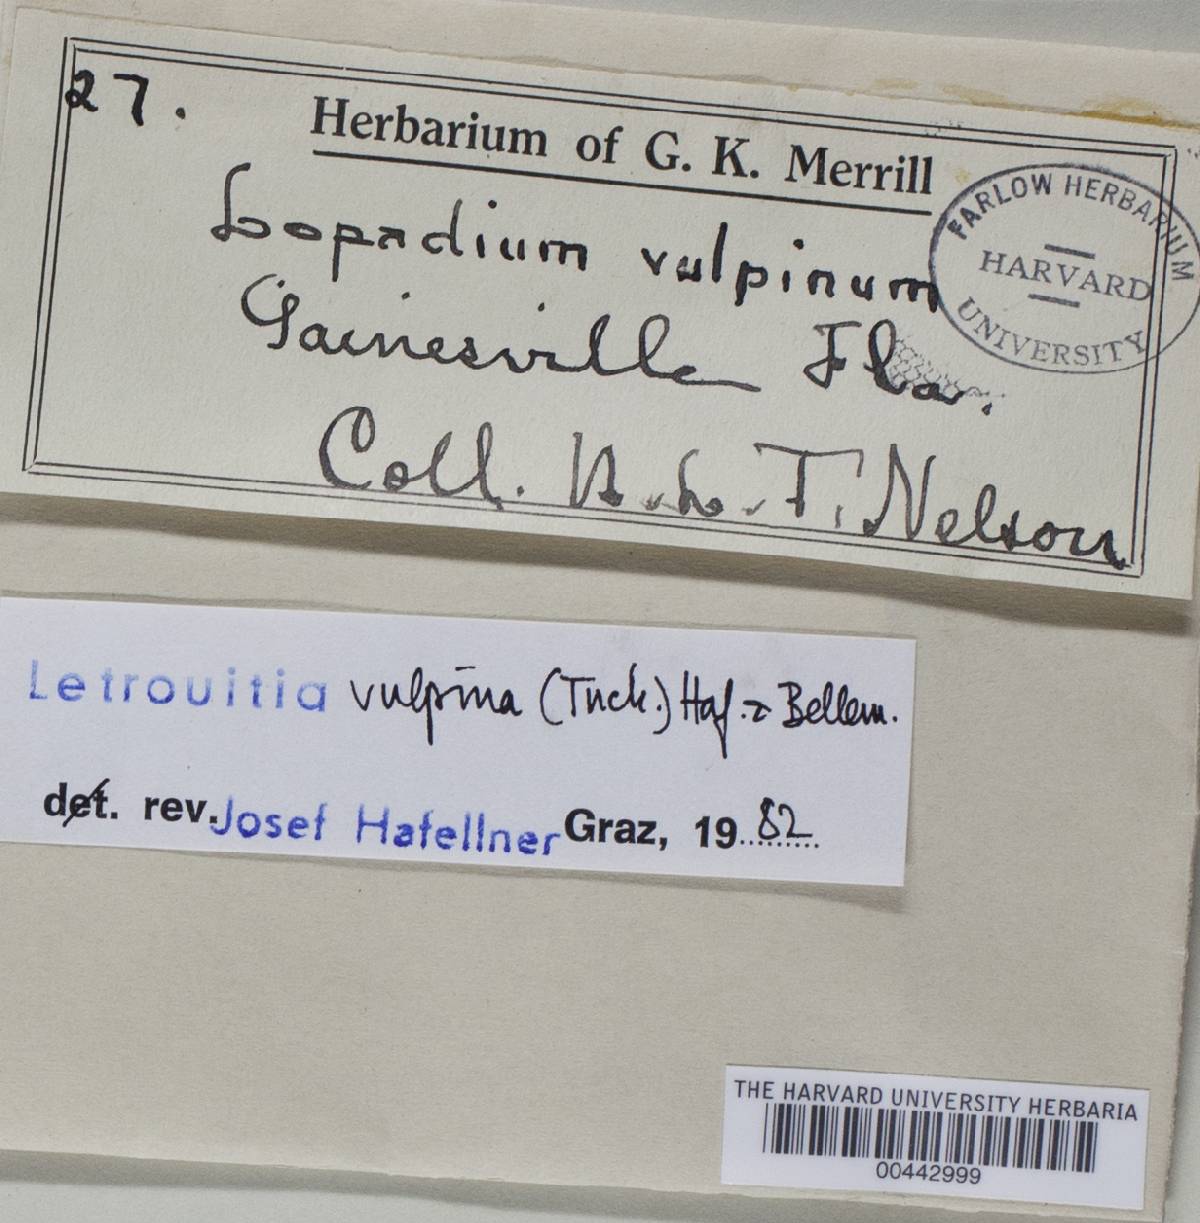 27.
Herbarium of G. K. Merrill
Lopadium vulpinum
Gainesville Fla.
Coll. N. L. T. Nelson
FARLOW HERBARIUM
HARVARD
UNIVERSITY
Letrouitia vulpina (Tuck.) Haf. & Bellem.
det. rev. Josef Hafellner Graz, 1982
THE HARVARD UNIVERSITY HERBARIA
00442999